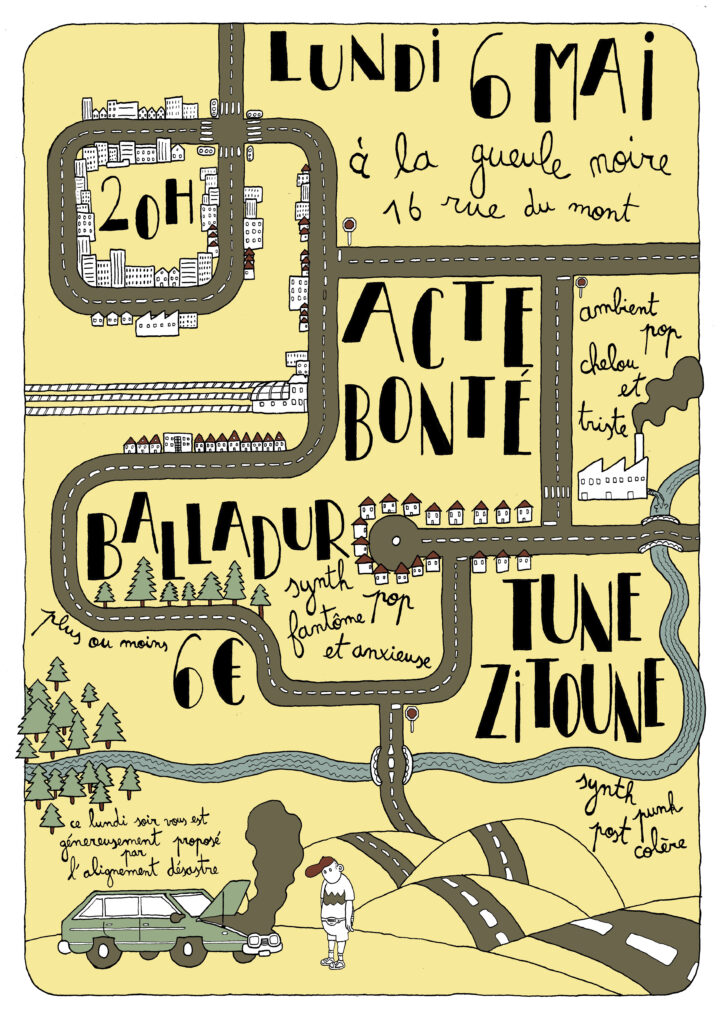 LUNDI 6 MAI
à la gueule noire
16 rue du mont
20H
ACTE
BONTÉ
ambient
pop
chelou
et
triste
BALLADUR
synth
pop
fantôme
et anxieuse
plus ou moins
6€
TUNE
ZITOUNE
synth
punk
post
colère
ce lundi soir vous est
génereusement proposé
par
l'alignement désastre